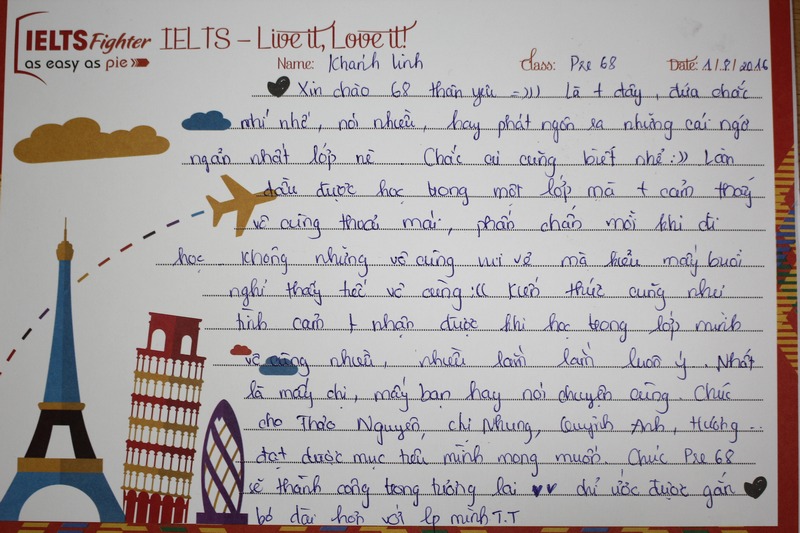 IELTS Fighter
as easy as pie
IELTS – Live it, Love it!
Name: Khánh Linh Class: Pre 68 Date: 1/8/2016
Xin chào 68 thân yêu =))) Là t đây, đứa chắc
nhí nhố, nói nhiều, hay phát ngôn ra những cái ngớ
ngẩn nhất lớp nè. Chắc ai cũng biết nhể :)) Lần
đầu được học trong một lớp mà t cảm thấy
vô cùng thoải mái, phấn chấn mỗi khi đi
học. Không những vô cùng vui vẻ mà kiểu mấy buổi
nghỉ thấy tiếc vô cùng :(( Kiến thức cũng như
tình cảm t nhận được khi học trong lớp mình
vô cùng nhiều, nhiều lắm lắm luôn ý. Nhất
là mấy chị, mấy bạn hay nói chuyện cùng. Chúc
cho Thảo Nguyên, chị Nhung, Quỳnh Anh, Hương ...
đạt được mục tiêu mình mong muốn. Chúc Pre 68
sẽ thành công trong tương lai ♥♥ chỉ ước được gắn
bó dài hơn với lp mình T.T